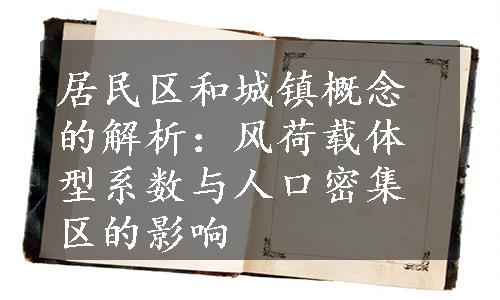 居民区和城镇概念
的解析：风荷载体
型系数与人口密集
区的影响